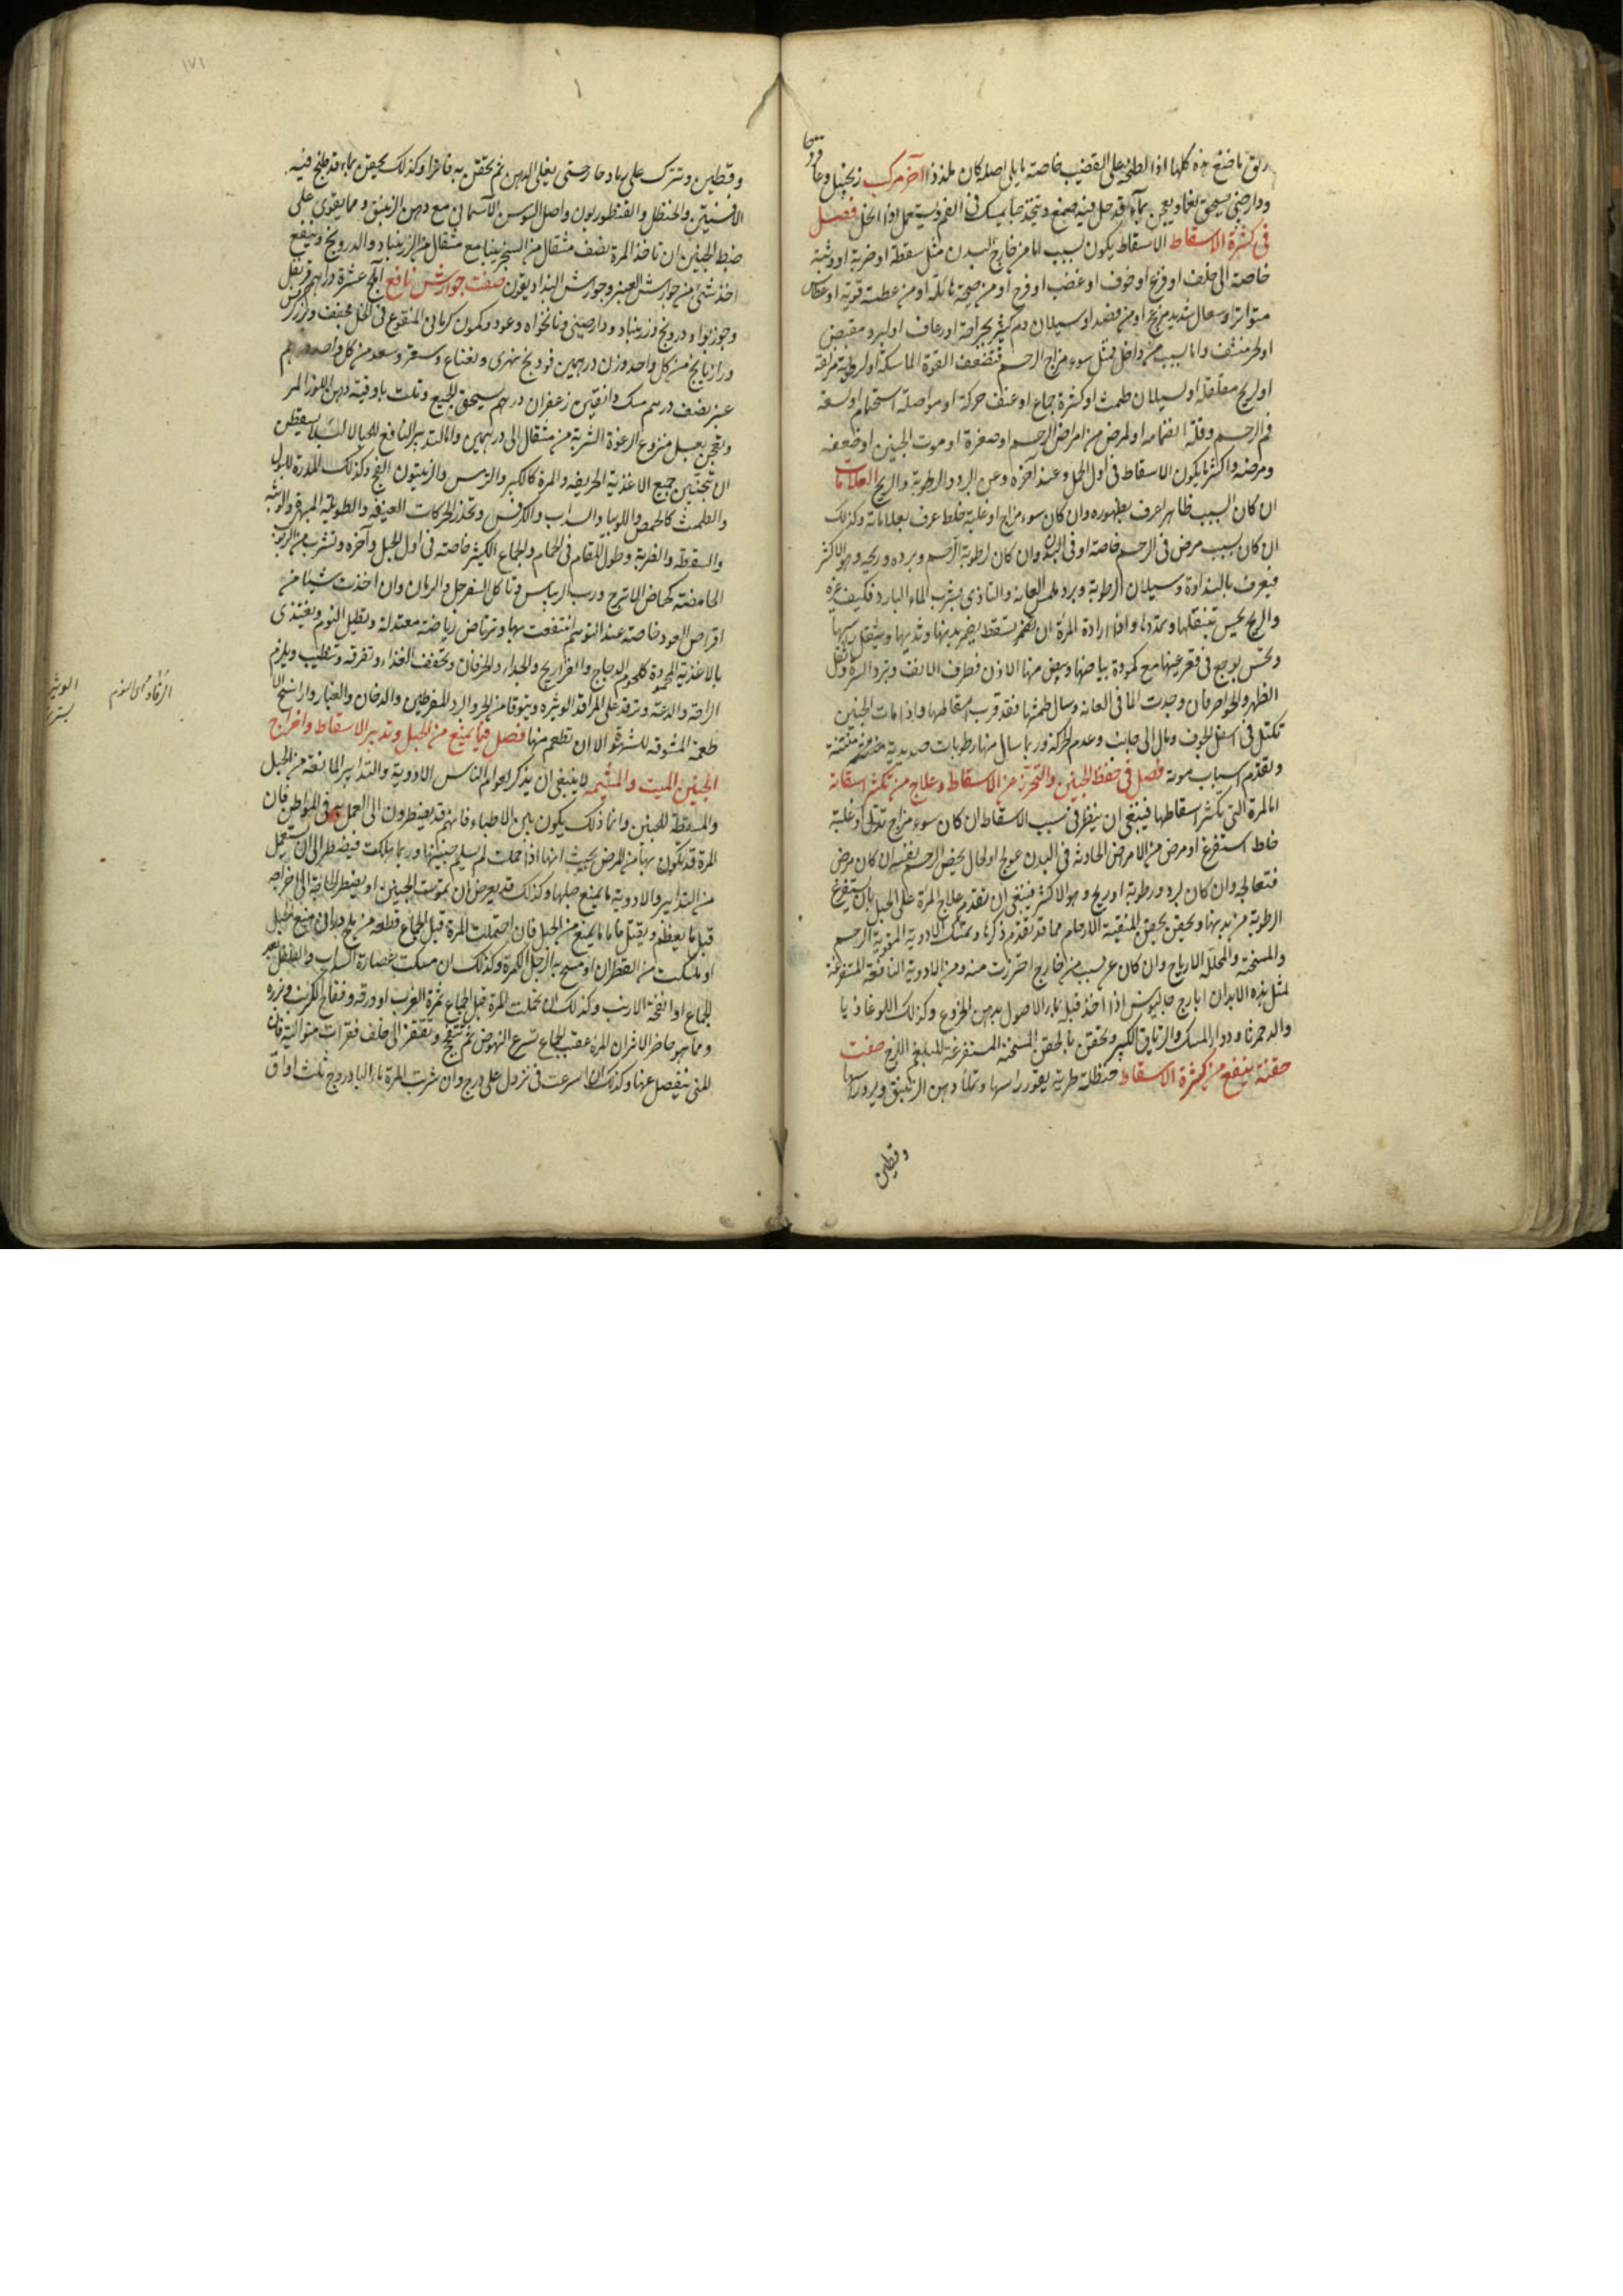 ريق ماضغ هذه كلها اذا لطخ على القضيب خاصة ما يلى اصله كان ملذذا آخر مركب زنجبيل وعاقرقرحا
ودارصينى يسحق نعما ويعجن بماء قد حل فيه صمغ ويتخذ حبا يمسك فى الفم ويستعمل اذا انحل فصل
فى كثرة الاسقاط الاسقاط يكون لسبب اما من خارج البدن مثل سقطة او ضربة او وثبة
خاصة الى خلف او فزع او خوف او غضب او فرح او من صيحة هائلة او من عطسة قوية او عطاس
متواتر او سعال شديد مزعج او من فصد او سيلان دم كثير بجراحة او رعاف او لبرد مقبض
او لحر منشف واما بسبب من داخل مثل سوء مزاج الرحم فتضعف القوة الماسكة او لرطوبة مزلقة
او لريح مقلقلة او لسيلان طمث او كثرة جماع او عنف حركة او مواصلة استحمام او لسعة
فم الرحم وقلة انضمامه او لمرض من امراض الرحم او صغره او موت الجنين او ضعفه
ومرضه واكثر ما يكون الاسقاط فى اول الحمل وعند آخره وعن البرد والرطوبة والريح العلامات
ان كان السبب ظاهرا عرف بظهوره وان كان سوء مزاج او غلبة خلط عرف بعلاماته وكذلك
ان كان بسبب مرض فى الرحم خاصة او فى البدن وان كان لرطوبة الرحم وبرده وريحه وهو الاكثر
فيعرف بالنداوة وسيلان الرطوبة وبرد ملمس العانة والتاذى بشرب الماء البارد فكيف غيره
والريح يحس بتنقلها وتمددها واذا ارادة المرأة ان تسقط يضمر بدنها وثديها ويثقل راسها
وتحس بوجع فى قعر عينها مع كمودة بياضها ويبيض منها الاذن فطرف الانف وتبرد السرة وثقل
الظهر والخواصر فان وجدت الما فى العانة وسال طمثها فقد قرب اسقاطها واذا مات الجنين
تكتل فى اسفل الجوف ومال الى جانب وعدم الحركة وربما سال منها رطوبات صديدية منتنة
ولتقدم اسباب موته فصل فى حفظ الجنين والتحرز من الاسقاط وعلاج من تكثر اسقاطه
اما المرة التى يكثر اسقاطها فينبغى ان ينظر فى سبب الاسقاط ان كان سوء مزاج تدلى او غلبة
خلط استفرغ او مرض من الامراض الحادثة فى البدن عولج او لحال يخص الرحم نفسه ان كان مرض
فتعالجه وان كان لبرد ورطوبة او ريح وهو الاكثر فينبغى ان تقدم علاج المرة على الحبل بان تستفرغ
الرطوبة من بدنها وتحقن بحقن المنقية للارحام مما قد تقدم ذكرها وتمسك الادوية المقوية الرحم
والمسخنة والمحللة للارياح وان كان عن سبب من خارج احترزت منه ومن الادوية النافعة المستفرغة
لمثل هذه الابدان ايارج جالينوس اذا اخذ قبله بماء الاصول بدهن الخروع وكذلك اللوغاذيا
والدحمرثا ودواء المسك والترياق الكبير وتحقن بالحقن المسخنة المستفرغة للبلغم اللزج صفت
حقنة ينفع من كثرة الاسقاط حنظلة طرية يقور راسها وتملأ دهن الزنبق ويرد راسها
وقطين
١٧١
وقطين وتترك على رماد حار حتى يغلى الدهن ثم يحتقن به فاترا وكذلك يحقن بماء قد طبخ فيه
الافسنتين والحنظل والقنطوريون واصل السوسن الآسمانى مع دهن الزنبق ومما يقوى على
ضبط الجنين ان تاخذ المرة نصف مثقال من السجزنيا مع مثقال من الزرنباد والدرونج وينفع
اخذ شئ من جوارش العنبر وجوارش البنداديقون صفت جوارش نافع آملج عشرة دراهم قرنفل
وجوزبوا ودرونج وزرنباد ودارصينى ونانخواه وعود وكمون كرمانى المنقوع فى الخل مجفف وكرفس
ورازيانج من كل واحد وزن درهمين فودينج نهرى ونعناع وسعتر وسعد من كل واحد درهم
عنبر نصف درهم مسك دانقين زعفران درهم يسحق الجميع وتلت باوقية دهن اللوز المر
ويعجن بعسل منزوع الرغوة الشربة من مثقال الى درهمين واما التدبير النافع للحبالا لئلا يسقطن
ان تجتنبن جميع الاغذية الحريفه والمرة كالكبر والترمس والزيتون الفج وكذلك المدرة للبول
والطمث كالحمص واللوبيا والسداب والكرفس وتحذر الحركات العنيفه والطويلة المبهرة والوثبة
والسقطة والضربة وطول المقام فى الحمام والجماع الكثير خاصة فى اول الحبل وآخره وتشرب من الربوب
الحامضة كحماض الاترج ورب الريباس وتاكل السفرجل والرمان وان اخذت شيئا من
اقراص العود خاصة عند النوم انتفعت بها وترتاض رياضة معتدلة وتطيل النوم وتغتذى
بالاغذية المحمودة كلحوم الدجاج والفراريج والجداء والخرفان وتخفف الغذاء وتفرقه وتطيب ويلزم
الراحة والدعة وترقد على المراقد الوثيره وتتوقا من الحر والبرد المفرطين والدخان والغبار ورائح الا
طعمة المشوقه للشهوة الا ان تطعم منها فصل فيما يمنع من الحبل وتدبير الاسقاط واخراج
الجنين الميت والمشيمه لا ينبغى ان يذكر لعوام الناس الادوية والتدابير المانعة من الحبل
والمسقطة للجنين وانما ذلك يكون بين الاطباء فانهم قد يضطرون الى العمل به فى المواطن فان
المرة قد تكون بها من المرض بحيث انها اذا حملت لم يسلم جنينها وربما هلكت فيضطر الى ان تستعمل
من التدابير والادوية ما يمنع حبلها وكذلك قد يعرض ان يموت الجنين او يضطر الحاجة الى اخراجه
قبل ما يعظم ويقتل فاما ما يمنع من الحبل فان احتملت المرة قبل الجماع قطعة من ملح دارانى منع الحبل
او مسكت من القطران او مسح به الرجل الكمرة وكذلك ان مسكت عصارة السداب والفلفل بعد
الجماع او انفحة الارنب وكذلك ان تحملت المرة قبل الجماع ثمرة الغرب او ورقه وفقاح الكرنب وبزره
ومما هو حاضر الاثر ان المرة عقب الجماع تسرع النهوض ثم تتنحنح وتقفز الى خلف قفزات متوالية فان
المنى ينفصل عنها وكذلك ان اسرعت فى نزول على درج وان شربت المرة ماء الباذروج ثلث اواق